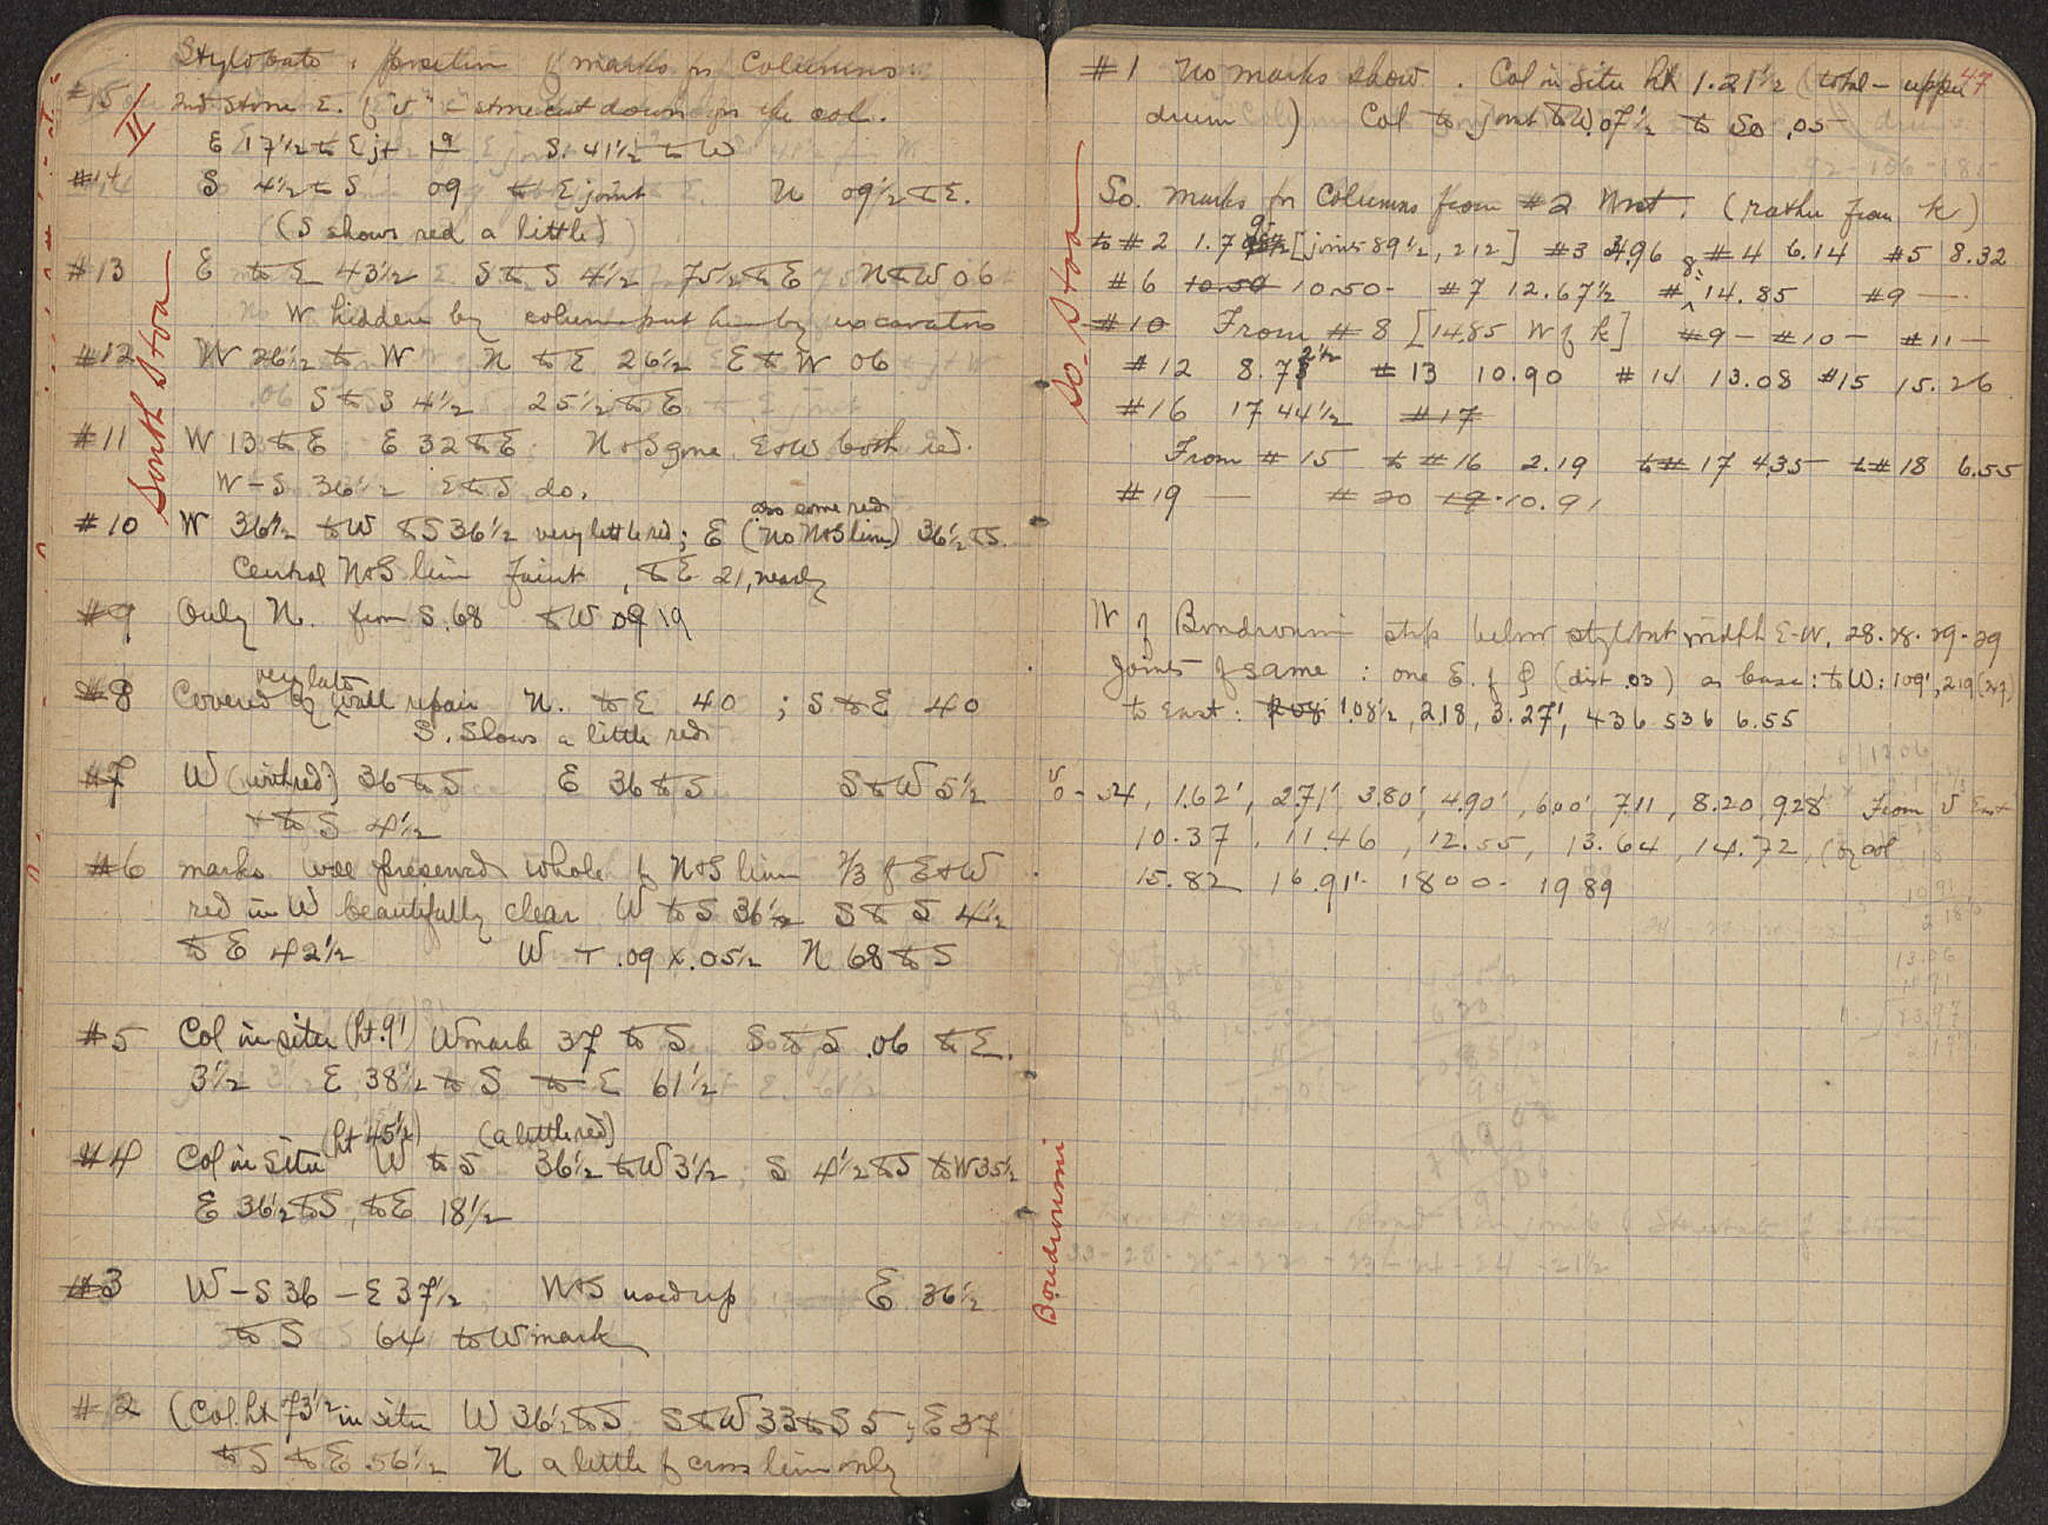 Stylobate : position of marks for Columns
#15 2nd stone E. of "v" = stone cut down for the col.
II
E 17½ to E jt 19 S. 41½ to W
#14 S 4½ to S 09 to E joint N 09½ to E.
(S shows red a little)
South Stoa
#13 E to E 43½ S to S 4½ 75½ to E N to W 06
W hidden by column put here by excavators
#12 W 26½ to W N to E 26½ E to W 06
S to S 4½ 25½ to E
#11 W 13 to E E 32 to E N+S gone E+W both red.
W-S 36½ E to S do.
also some red
#10 W 36½ to W to S 36½ very little red; E (no N+S line) 36½ to S.
Central N+S line faint, to E 21, nearly
#9 Only N. from S. 68 to W 09 19
very late
#8 Covered by wall repair N. to E 40 ; S to E 40
S. Shows a little red
#7 W (with red) 36 to S E 36 to S S to W 5½
+ to S 4½
#6 marks well preserved whole of N+S line ⅔ of E+W
red in W beautifully clear W to S 36½ S to S 4½
to E 42½ W T .09 x .05½ N 68 to S
#5 Col in situ (ht. 91) W mark 37 to S S to S .06 to E.
3½ E 38½ to S to E 61½
(ht 45½) (a little red)
#4 Col in situ W to S 36½ to W 3½, S 4½ to S to W 35½
E 36½ to S, to E 18½
#3 W-S 36 - E 37½ N+S used up E 36½
to S 64 to W mark
#2 (Col. ht 73½ in situ W 36½ to S S to W 33 to S 5; E 37
to S to E .56½ N a little of cross line only
47
#1 No marks show. Col in situ ht 1.21½ (total - upper
drum) Col to joint to W .07½ to So .05
So. Stoa
So. marks for Columns from #2 West. (rather from k)
to #2 1.79 [joins 89½, 212] #3 3.96 #4 6.14 #5 8.32
#6 10.50 10.50- #7 12.67½ #8 14.85 #9 —
#10 From #8 [14.85 W of k] #9 - #10 - #11 —
#12 8.72½ #13 10.90 #14 13.08 #15 15.26
#16 17 44½ #17
From #15 to #16 2.19 to #17 4.35 to #18 6.55
#19 — #20 19. 10.91
W of Boudroumi step below stylobat width E-W. 28.28.29.29
Joints of same : one E. of (dist .03) as base: to W: 109', 219
to East: 208 1.08½, 2.18, 3.27', 436 536 6.55
1.62', 2.71' 3.80', 4.90', 6.00', 7.11, 8.20, 9.28' From v East
10.37, 11.46, 12.55, 13.64, 14.72,
15.82 16.91'- 1800- 1989
Boudroumi